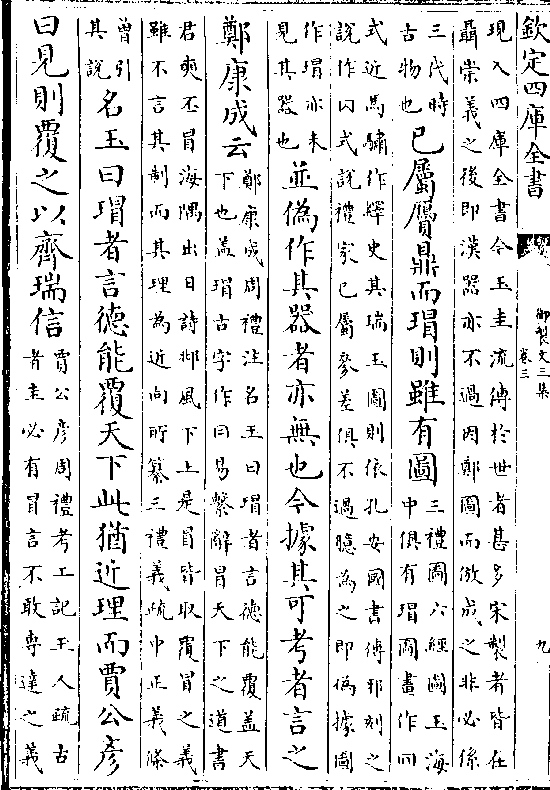 欽定四庫全書
御製文三集
卷三
九
現入四庫全書今玉圭流傳於世者甚多宋製者皆在
聶崇義之後即漢器亦不過因鄭圖而倣成之非必係
三代時
古物也
已屬贋鼎而瑁則雖有圖
三禮圖六經圖玉海
中俱有瑁圖畫作冋
式近馬驌作繹史其瑞玉圖則依孔安國書傳邪刻之
說作冂式說禮家已屬參差俱不過臆為之即偽據圖
作瑁亦未
見其器也
並偽作其器者亦無也今據其可考者言之
鄭康成云
鄭康成周禮注名玉曰瑁者言德能覆蓋天
下也蓋瑁古字作冃易繫辭冒天下之道書
君奭丕冒海隅出日詩邶風下土是冒皆取覆冒之義
雖不言其制而其理為近向所纂三禮義疏中正義條
曾引
其說
名玉曰瑁者言德能覆天下此猶近理而賈公彥
曰見則覆之以齊瑞信
賈公彥周禮考工記玉人疏古
者圭必有冒言不敢專達之義